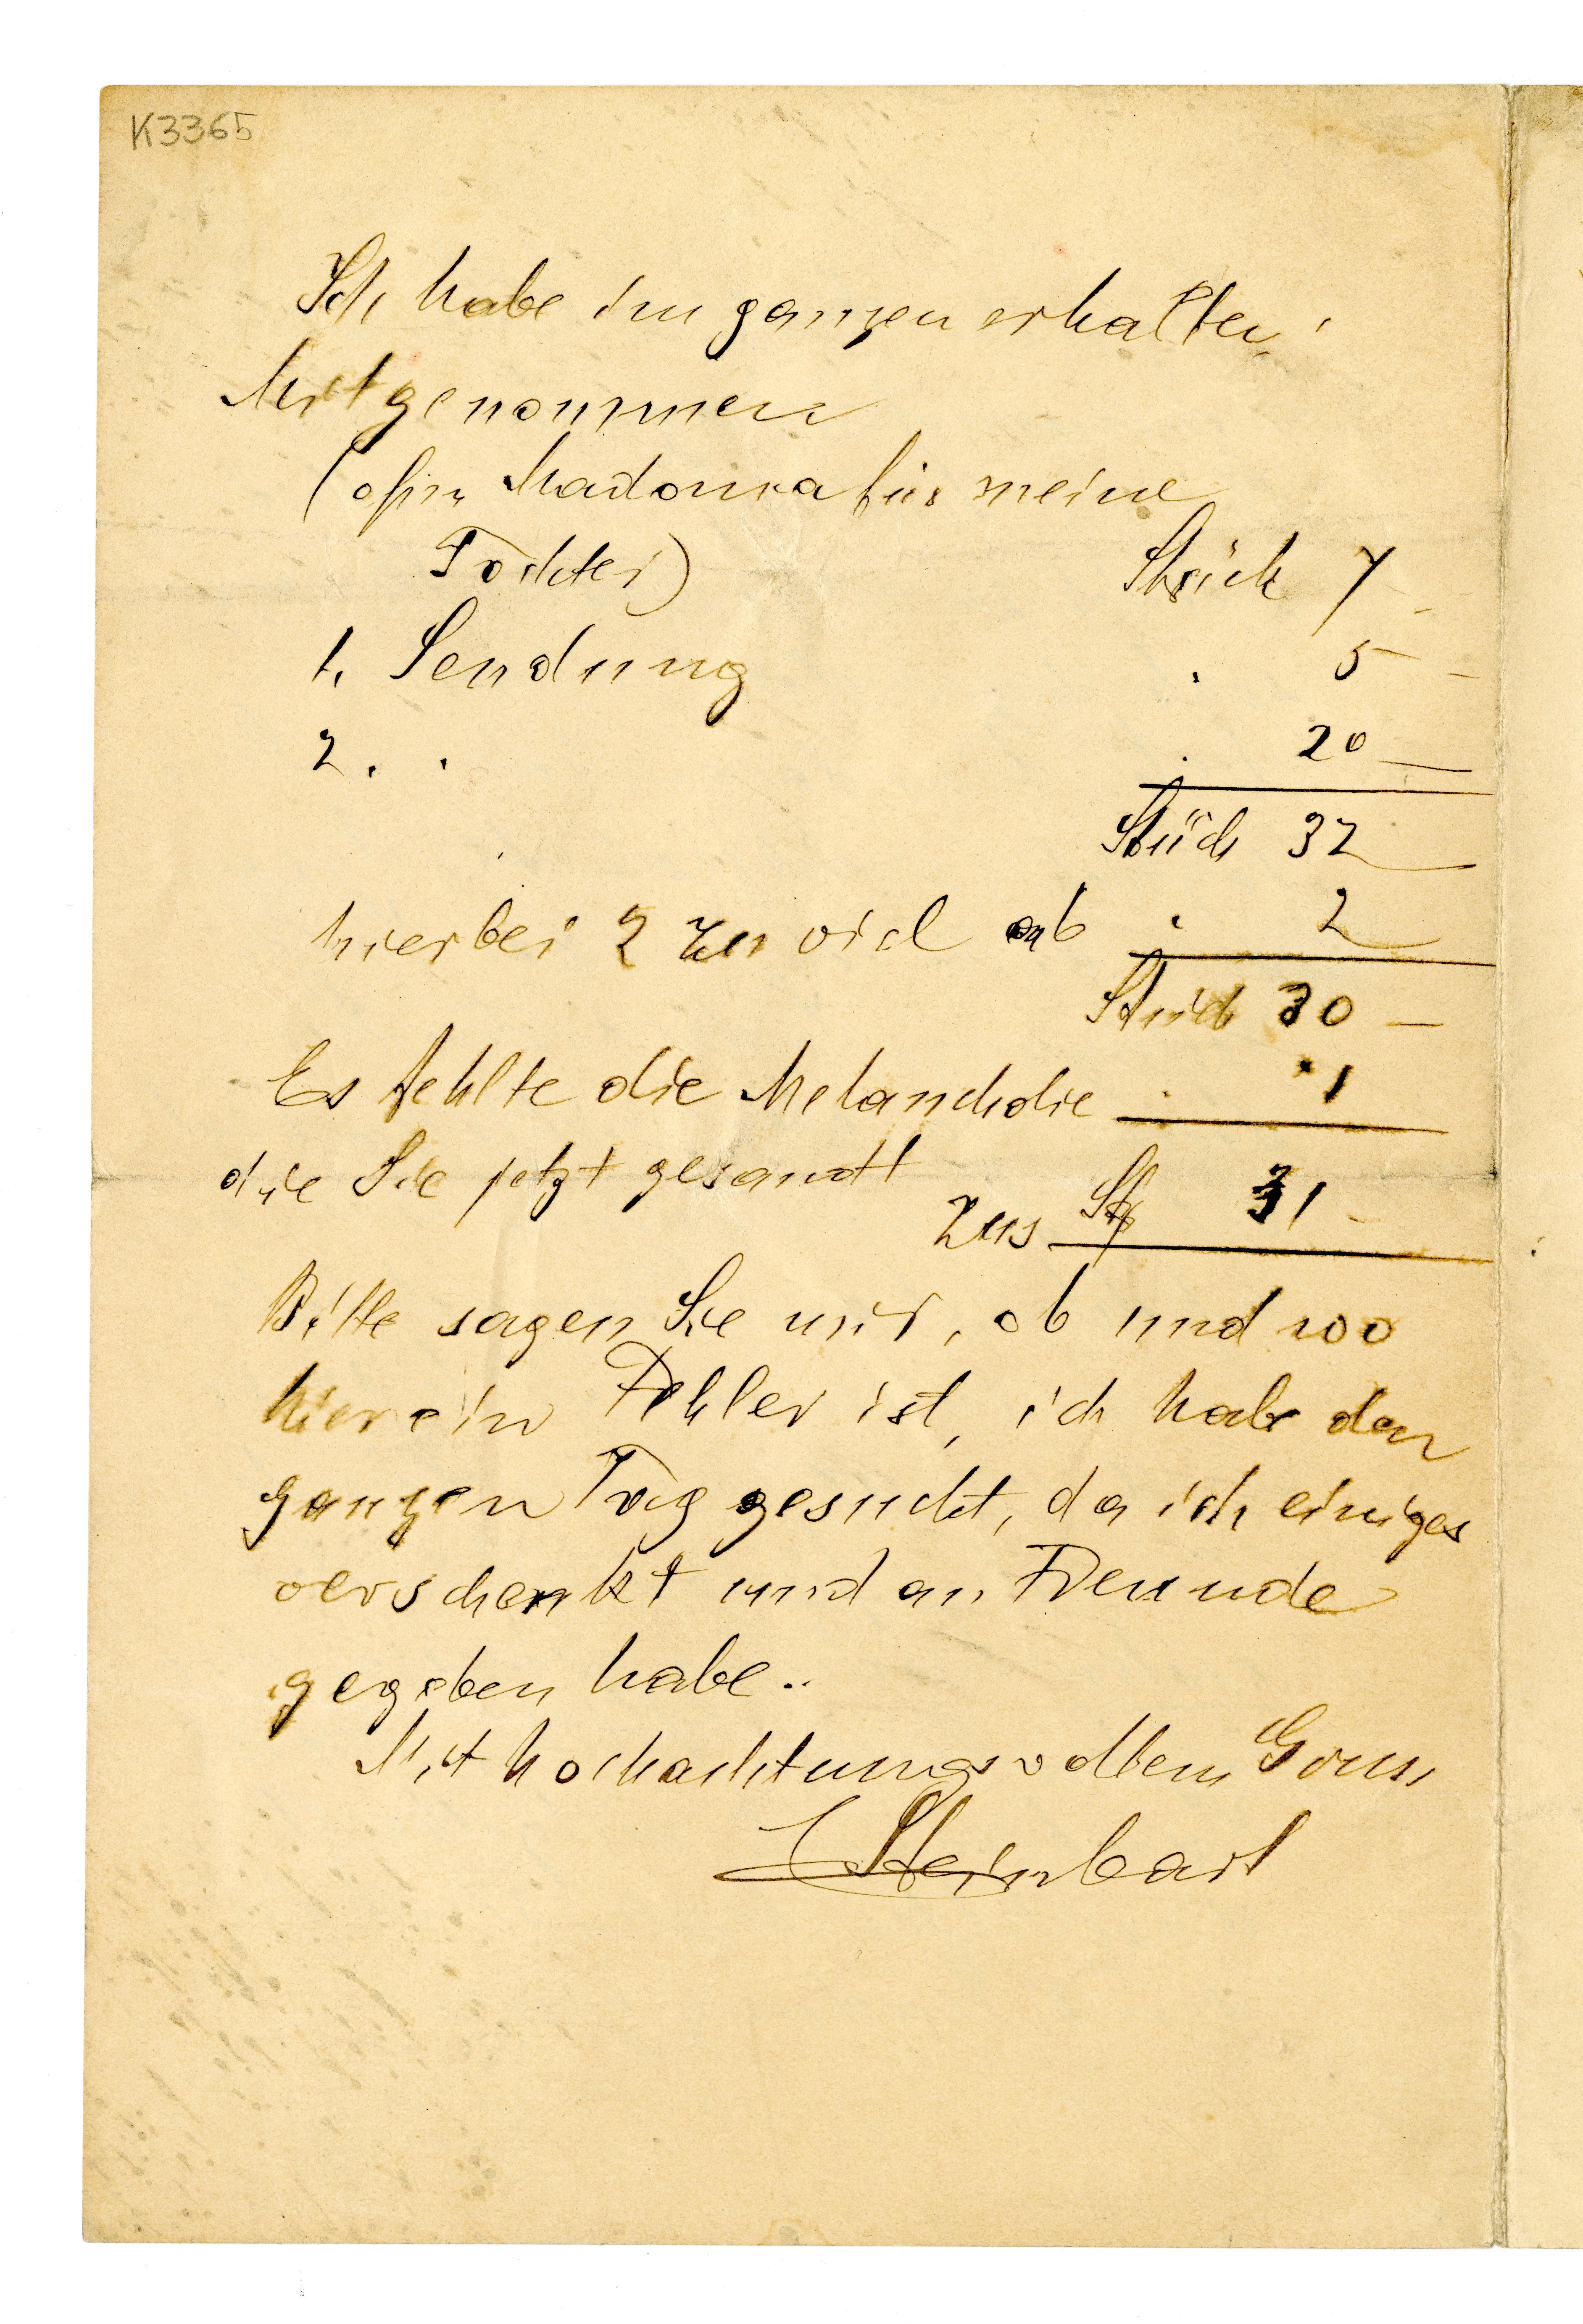 K3365
Ich habe im ganzen erhalten:
Mitgenommen
(ohne Madonna für meine
Tochter) Stück 7
1. Sendung " 5 –
2. " " 20 –
Stück 32
hierbei 2 zu viel ab " 2
Stück 30 –
Es fehlte die Melancholie " 1
die Sie jetzt gesandt
zus St 31 –
Bitte sagen Sie mir, ob und wo
hier ein Fehler ist, ich habe den
ganzen Tag gesucht, da ich einiges
verschenkt und an Freunde
gegeben habe.
Mit hochachtungsvollem Gruss
E Steinbart